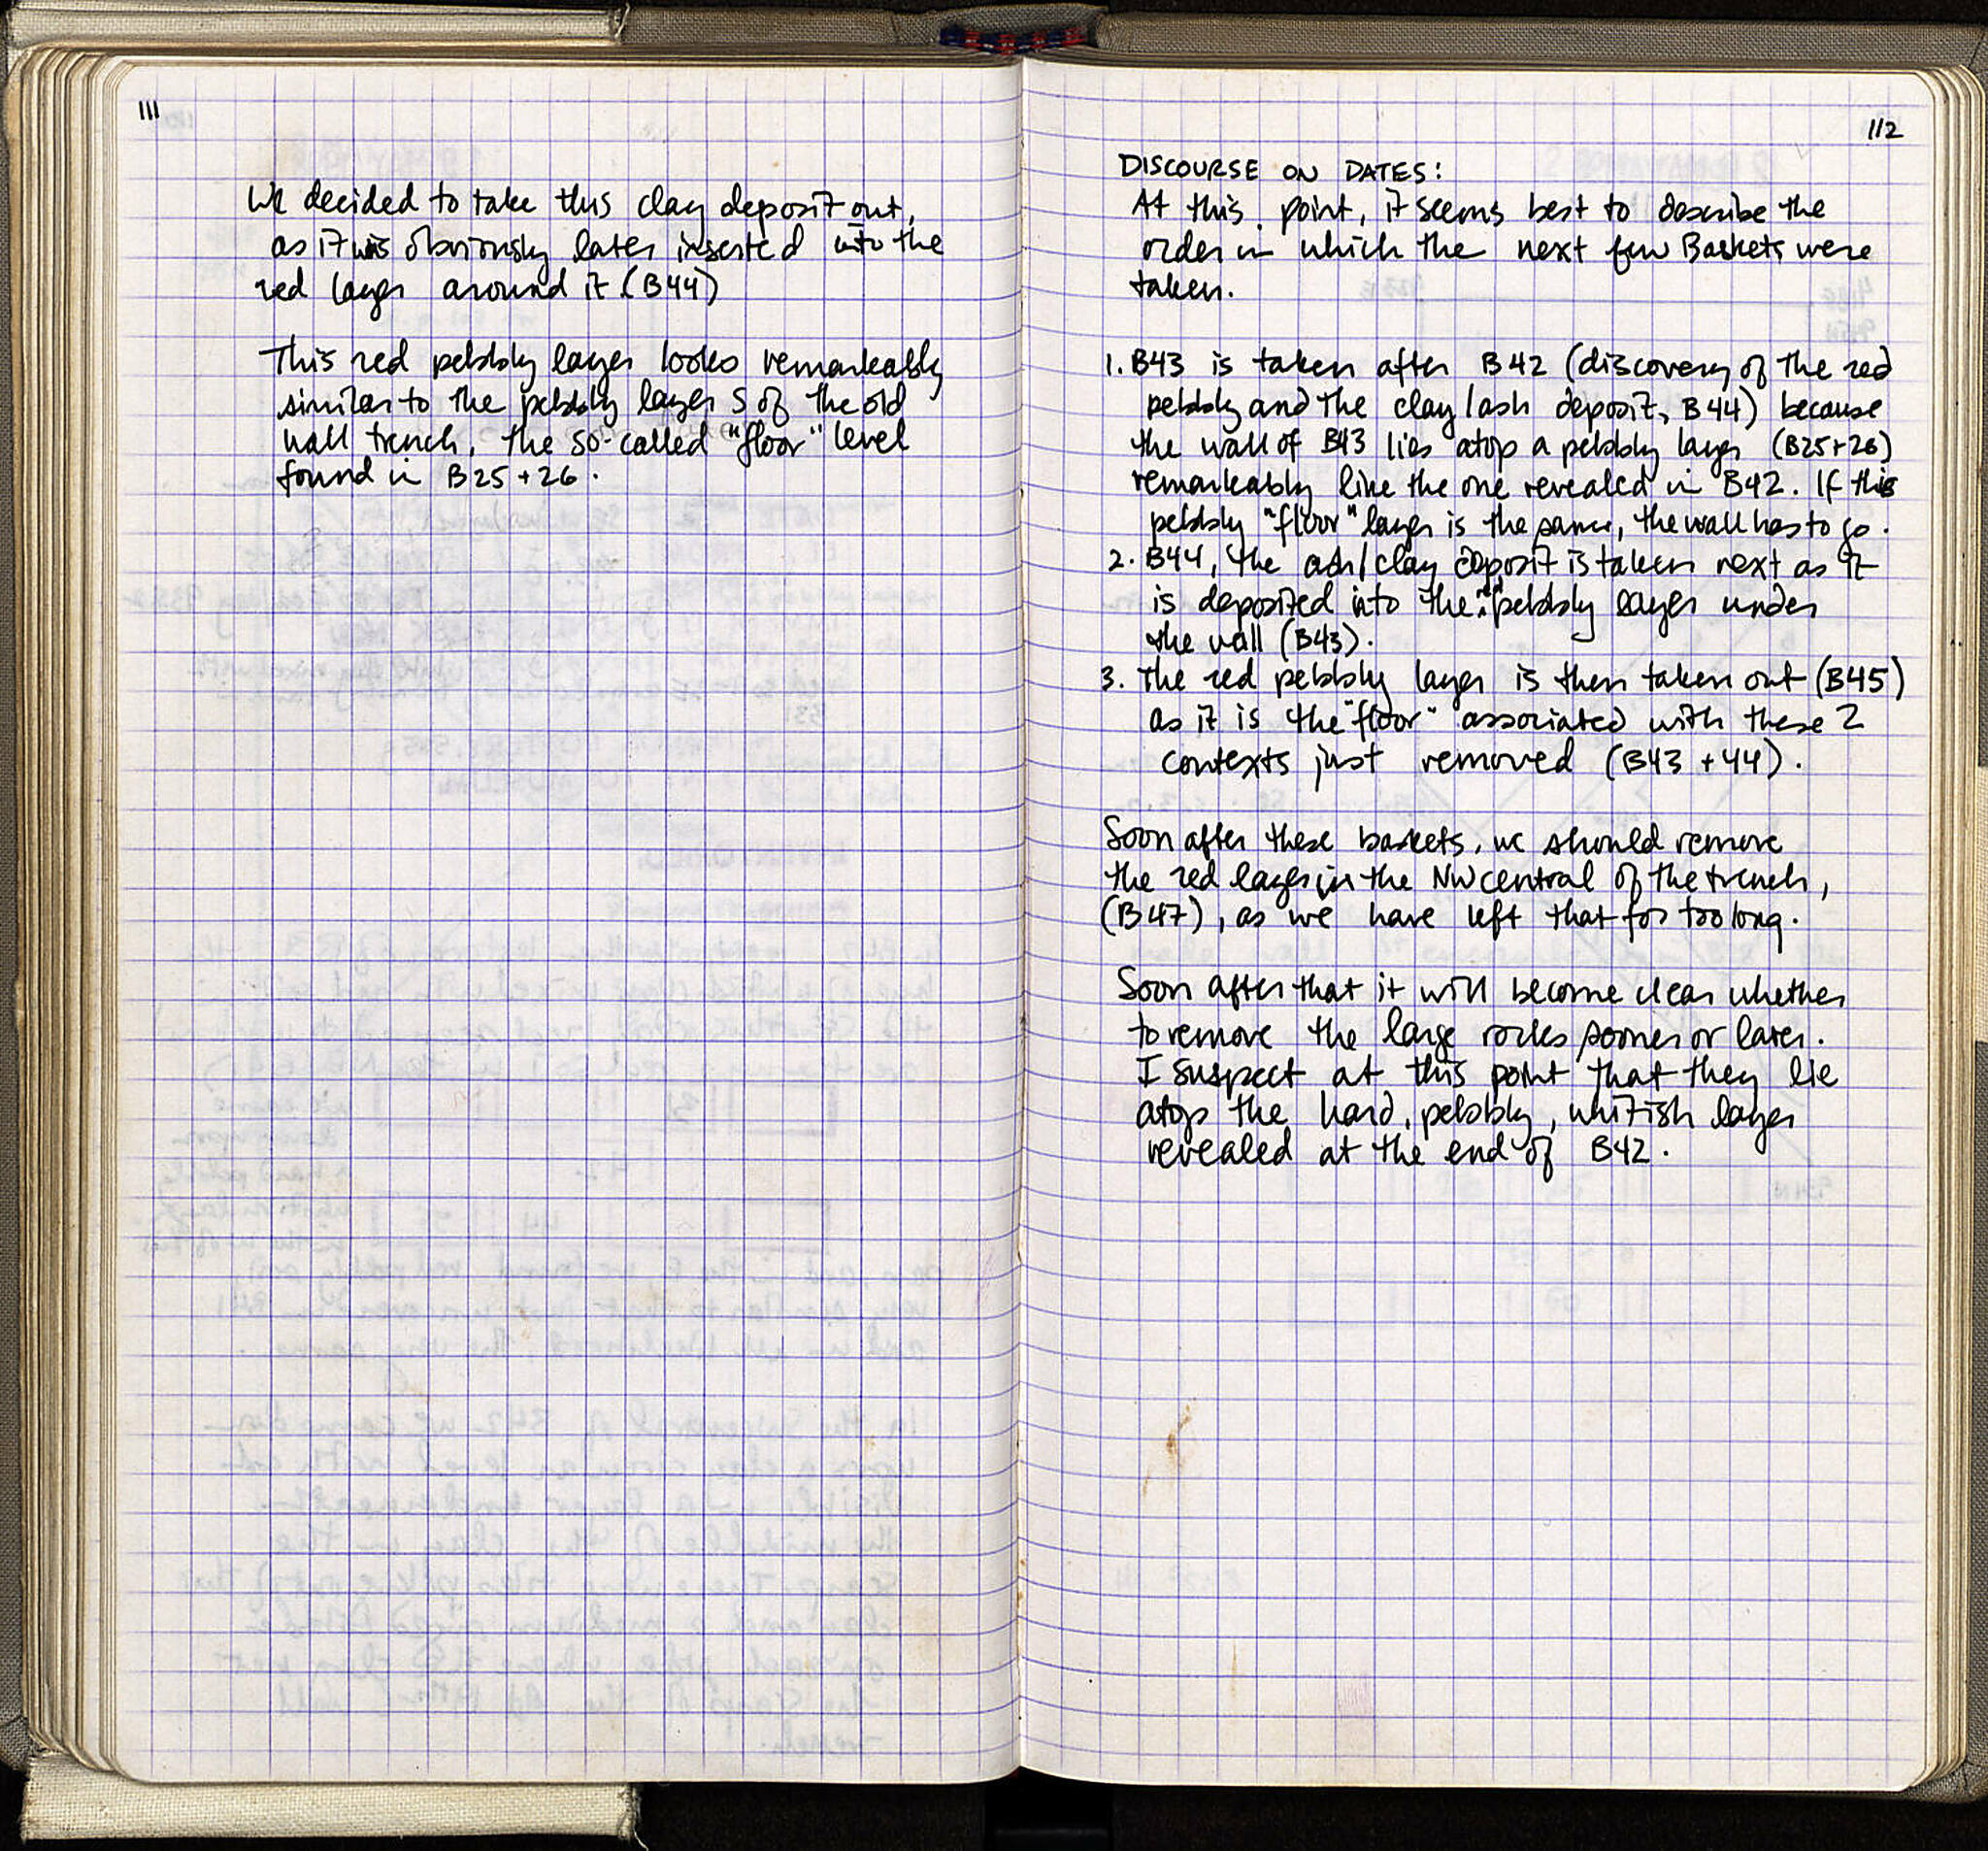 111
We decided to take this clay deposit out,
as it was obviously later inserted into the
red layer around it (B44)
This red pebbly layer looks remarkeably
similar to the pebbly layer S of the old
wall trench, the so-called "floor" level
found in B25+26.
112
DISCOURSE ON DATES:
At this point, it seems best to describe the
order in which the next few Baskets were
taken.
1. B43 is taken after B42 (discovery of the red
pebbly and the clay/ash deposit, B44) because
the wall of B43 lies atop a pebbly layer (B25+26)
remarkeably like the one revealed in B42. If this
pebbly "floor" layer is the same, the wall has to go.
2. B44, the ash/clay deposit is taken next as it
is deposited into the pebbly layer under
the wall (B43).
3. The red pebbly layer is then taken out (B45)
as it is the "floor" associated with these 2
contexts just removed (B43 + 44).
Soon after these baskets, we should remove
the red layer in the NW central of the trench,
(B47), as we have left that for too long.
Soon after that it will become clear whether
to remove the large rocks sooner or later.
I suspect at this point that they lie
atop the hard, pebbly, whitish layer
revealed at the end of B42.